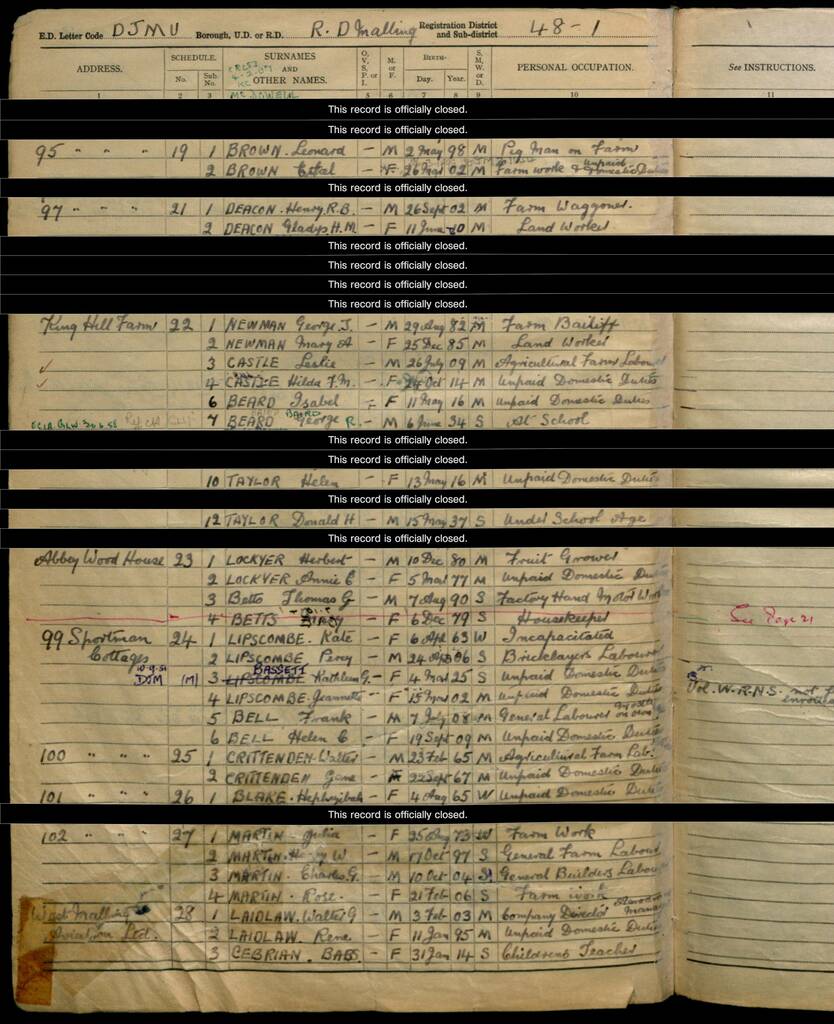 E.D. Letter Code DJMU Borough, U.D. or R.D. R. D Malling Registration District and Sub-district 48-1
ADDRESS. SCHEDULE. No. Sub. No. SURNAMES AND OTHER NAMES. O. V. S. P. or I. M. or F. BIRTH— Day. Year. S. M. W. or D. PERSONAL OCCUPATION. See INSTRUCTIONS.
1 2 3 5 6 7 8 9 10 11
This record is officially closed.
This record is officially closed.
95 " " " 19 1 BROWN. Leonard - M 2 May 98 M Pig Man on Farm
2 BROWN - F 26 Mar 02 M Farm work & unpaid Domestic Duties
This record is officially closed.
97 " " " 21 1 DEACON. Henry. R.B. - M 26 Sept 02 M Farm Waggoner.
2 DEACON Gladys. H.M. - F 11 June M Land Worker
This record is officially closed.
This record is officially closed.
This record is officially closed.
This record is officially closed.
King Hill Farm 22 1 NEWMAN George. J. - M 29 Aug 82 M Farm Bailiff
2 NEWMAN Mary A - F 25 Dec 85 M Land Worker
3 CASTLE Leslie - M 26 July 09 M Agricultural Farm Labou
4 CASTLE Hilda F.M. - F 24 Oct 14 M Unpaid Domestic Duties
6 BEARD Isabel - F 11 May 16 M Unpaid Domestic Duties
7 BEARD BAIRD George R. - M 6 June 34 S At School
This record is officially closed.
This record is officially closed.
10 TAYLOR Helen - F 13 May 16 M Unpaid Domestic Duties
This record is officially closed.
12 TAYLOR Donald H - M 15 May 37 S Under School Age
This record is officially closed.
Abbey Wood House 23 1 LOCKYER Herbert - M 10 Dec 80 M Fruit Grower
2 LOCKYER Annie E - F 5 Mar 77 M Unpaid Domestic Du
3 Betts Thomas G - M 7 Aug 90 S Factory Hand Motor Work
4 BETTS - F 6 Dec 79 S Housekeeper See Page 21
99 Sportman 24 1 LIPSCOMBE. Kate - F 6 Apr 63 W Incapacitated
Cottages 2 LIPSCOMBE Percy - M 24 Apr 06 S Bricklayers Labourer
10-9-51 DJM (M) 3 LIPSCOMBE BASSETT Kathleen G. - F 4 Mar 25 S Unpaid Domestic Duties Vol. W.R.N.S. not enrolled
4 LIPSCOMBE. Jeannette - F 15 Mar 02 M Unpaid Domestic Duties
5 BELL Frank - M 7 July 08 M General Labourer
6 BELL Helen E - F 19 Sept 09 M Unpaid Domestic Duties
100 " " " 25 1 CRITTENDEN. Walter - M 23 Feb 65 M Agricultural Farm Lab.
2 CRITTENDEN Jane - 22 Sept 67 M Unpaid Domestic Duties
101 " " " 26 1 BLAKE. Hephzibah - F 4 Aug 65 W Unpaid Domestic Duties
This record is officially closed.
102 " " " 27 1 MARTIN Julia - F 25 Aug 73 W Farm Work
2 MARTIN. Henry W. - M 17 Oct 97 S General Farm Labour
3 MARTIN. Charles. G. - M 10 Oct 04 S General Builders Labou
4 MARTIN. Rose. - F 21 Feb 06 S Farm work
West Malling 28 1 LAIDLAW. Walter G - M 3 Feb 03 M Company Director
Aviation Ltd. 2 LAIDLAW. Rene - F 11 Jan 95 M Unpaid Domestic Duties
3 CEBRIAN. BABS. - F 31 Jan 14 S Childrens Teacher